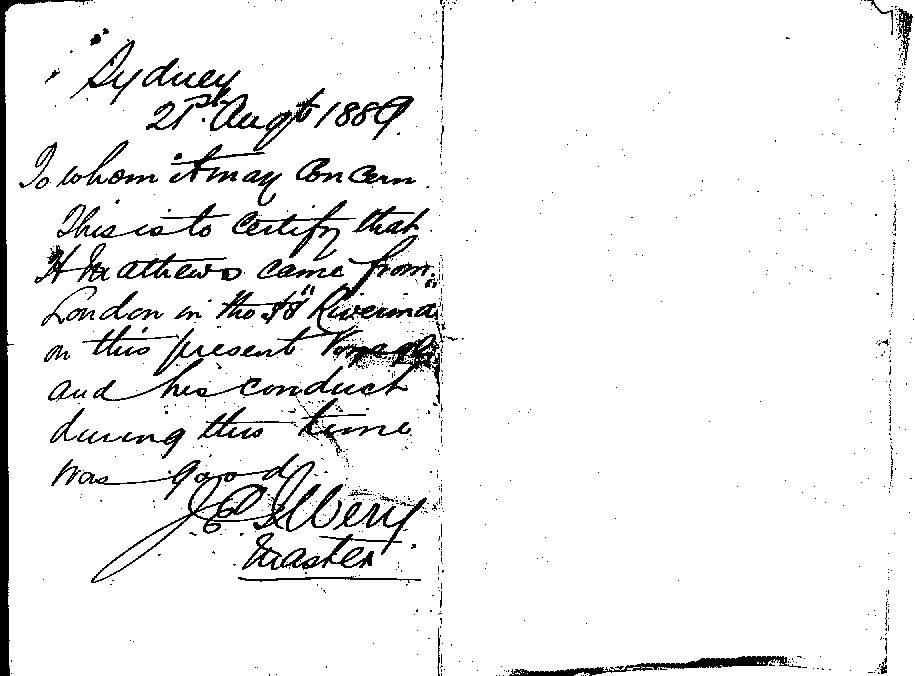 Sydney
21st Augt 1889.
To whom it may concern
This is to certify that
H Mathews came from
London in the SS "Riverina"
on this present Voyage
and his conduct
during this time
was good
Master